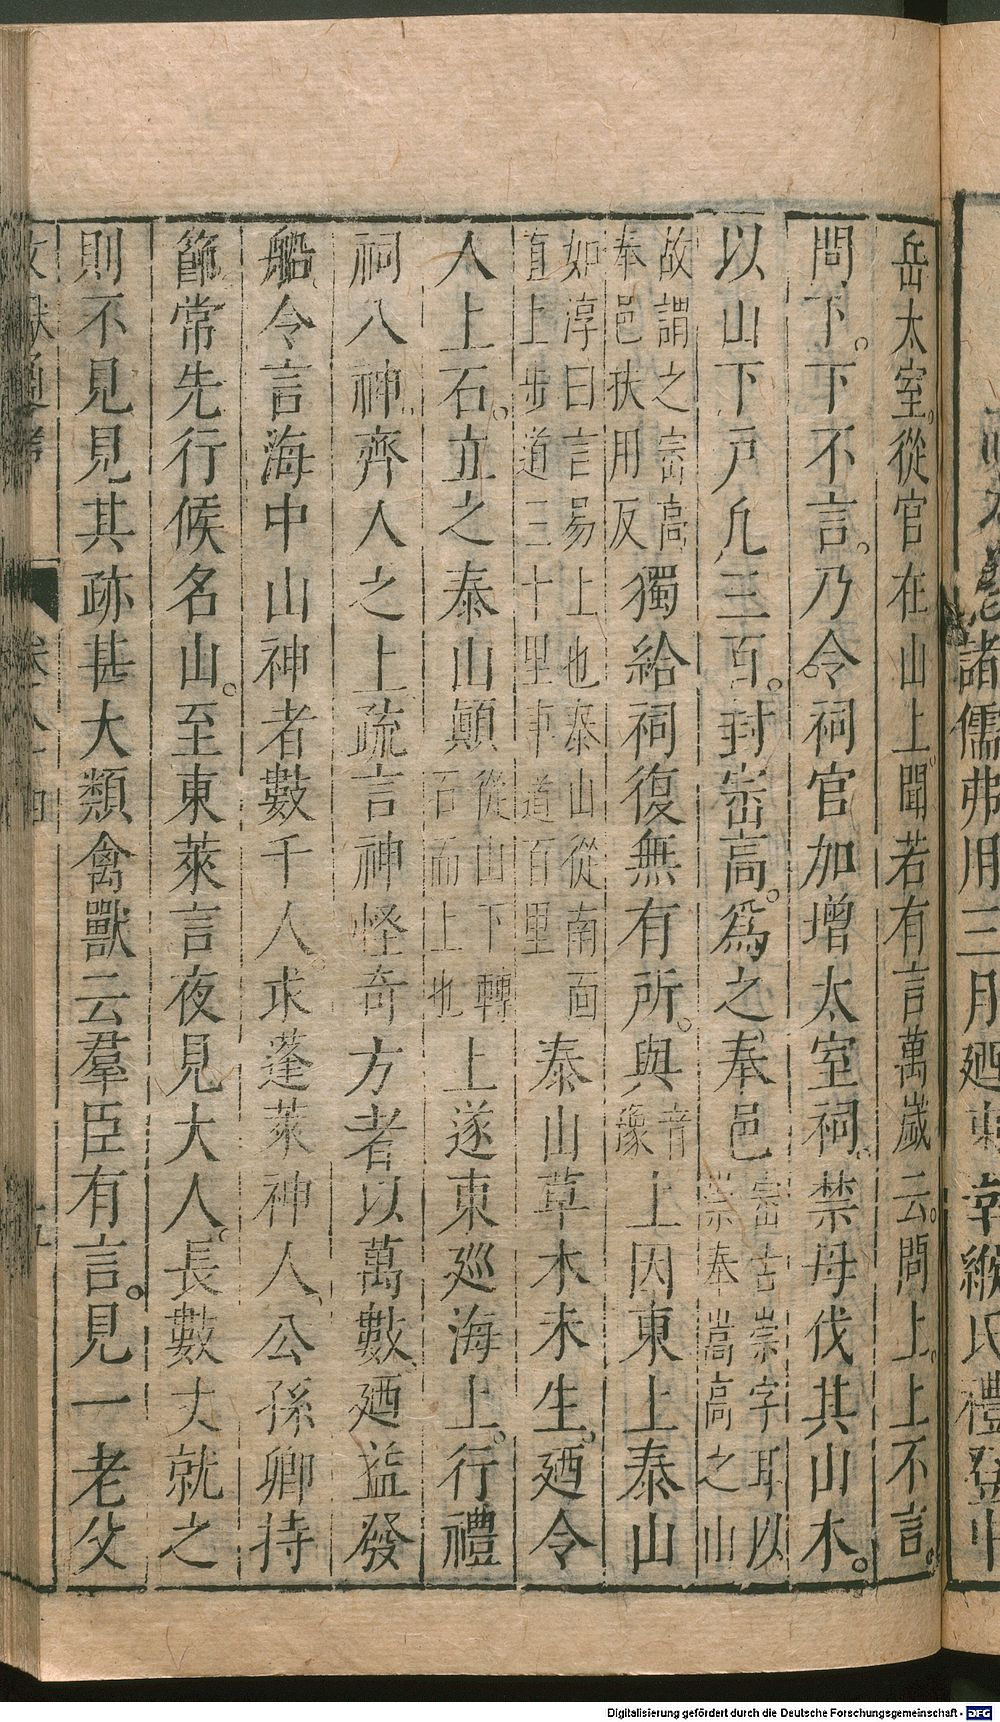 諸儒弗用三月廼東幸緱氏禮登中
岳太室。從官在山上聞若有言萬歲云。問上。上不言。
問下。下不言。乃令祠官加增太室祠。禁毋伐其山木。
以山下戶凡三百。封崈高。爲之奉邑
崈古崇字耳以
崇奉嵩高之山
故謂之崈高
奉邑扶用反
獨給祠復無有所。與
音
豫
上因東上泰山
如淳曰言易上也泰山從南面
直上步道三十里車道百里
泰山草木未生。廼令
人上石。立之泰山顛
從山下轉
石而上也
上遂東巡海上。行禮
祠八神。齊人之上疏言神怪奇方者以萬數、廼益發
船、令言海中山神者數千人。求蓬萊神人、公孫卿持
節常先行候名山。至東萊言夜見大人。長數丈就之
則不見見其跡甚大類禽獸云羣臣有言。見一老父
文獻通考
卷八十四
五
Digitalisierung gefördert durch die Deutsche Forschungsgemeinschaft - DFG